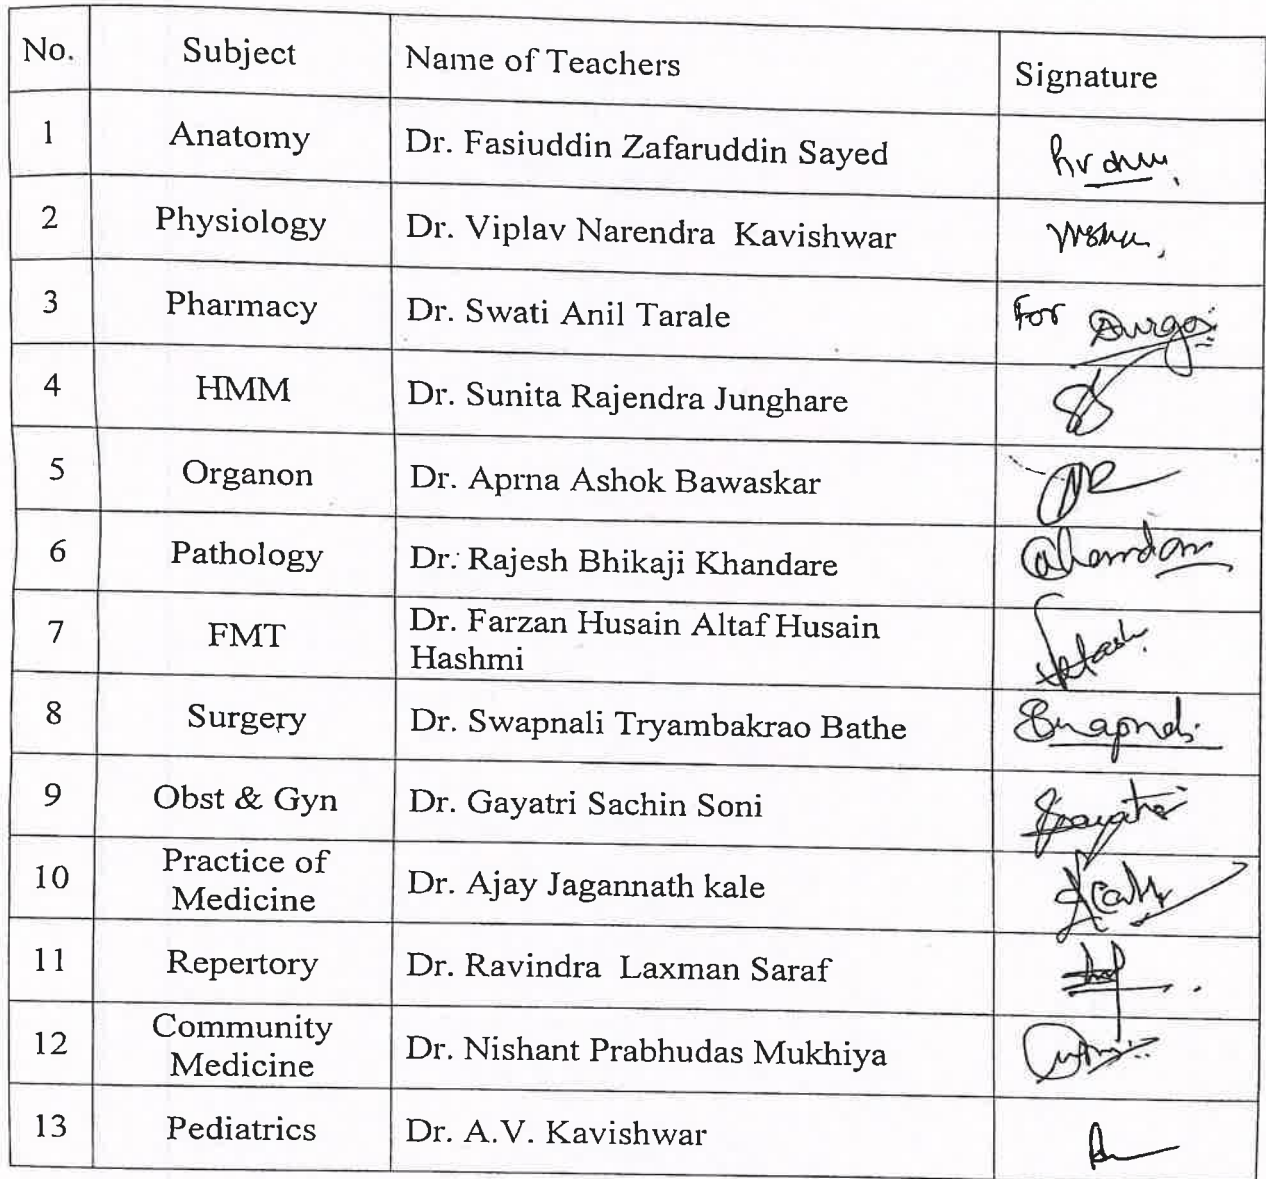 No. Subject Name of Teachers Signature
1 Anatomy Dr. Fasiuddin Zafaruddin Sayed
2 Physiology Dr. Viplav Narendra Kavishwar
3 Pharmacy Dr. Swati Anil Tarale For
4 HMM Dr. Sunita Rajendra Junghare
5 Organon Dr. Aprna Ashok Bawaskar
6 Pathology Dr. Rajesh Bhikaji Khandare
7 FMT Dr. Farzan Husain Altaf Husain
Hashmi
8 Surgery Dr. Swapnali Tryambakrao Bathe
9 Obst & Gyn Dr. Gayatri Sachin Soni
Practice of
10 Medicine Dr. Ajay Jagannath kale
11 Repertory Dr. Ravindra Laxman Saraf
Community
12 Medicine Dr. Nishant Prabhudas Mukhiya
13 Pediatrics Dr. A.V. Kavishwar